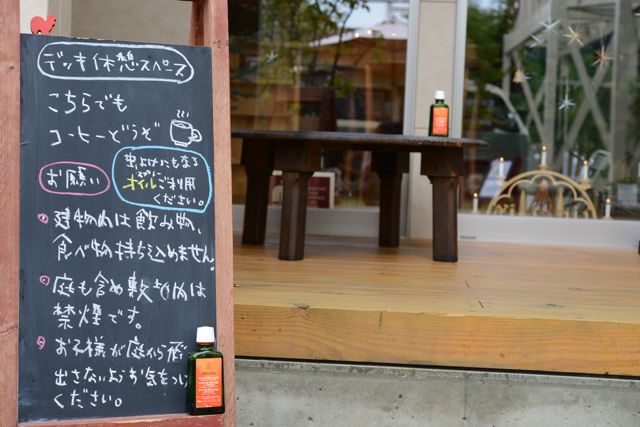 デッキ休憩スペース
こちらでも
コーヒーどうぞ
お願い
虫よけにもなる
オイルご利用
ください。
建物内は飲み物、
食べ物持ち込めません。
庭も含め敷地内は
禁煙です。
お子様が庭から飛び
出さないようお気をつけ
ください。